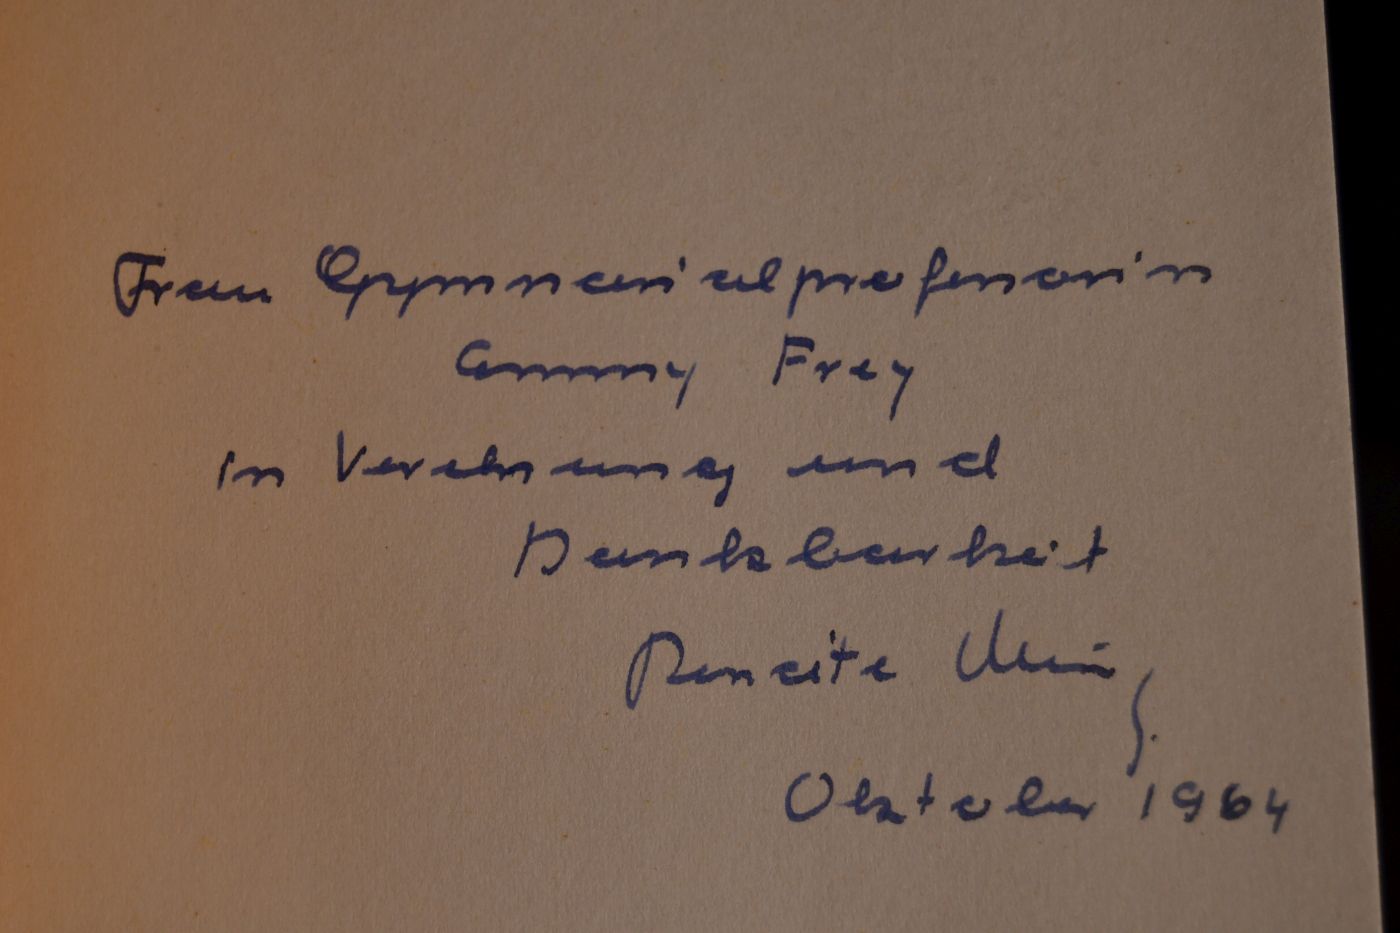 Frau Gymnasialprofessorin
Ammy Frey
in Verehrung und
Dankbarkeit
Renate
Oktober 1964